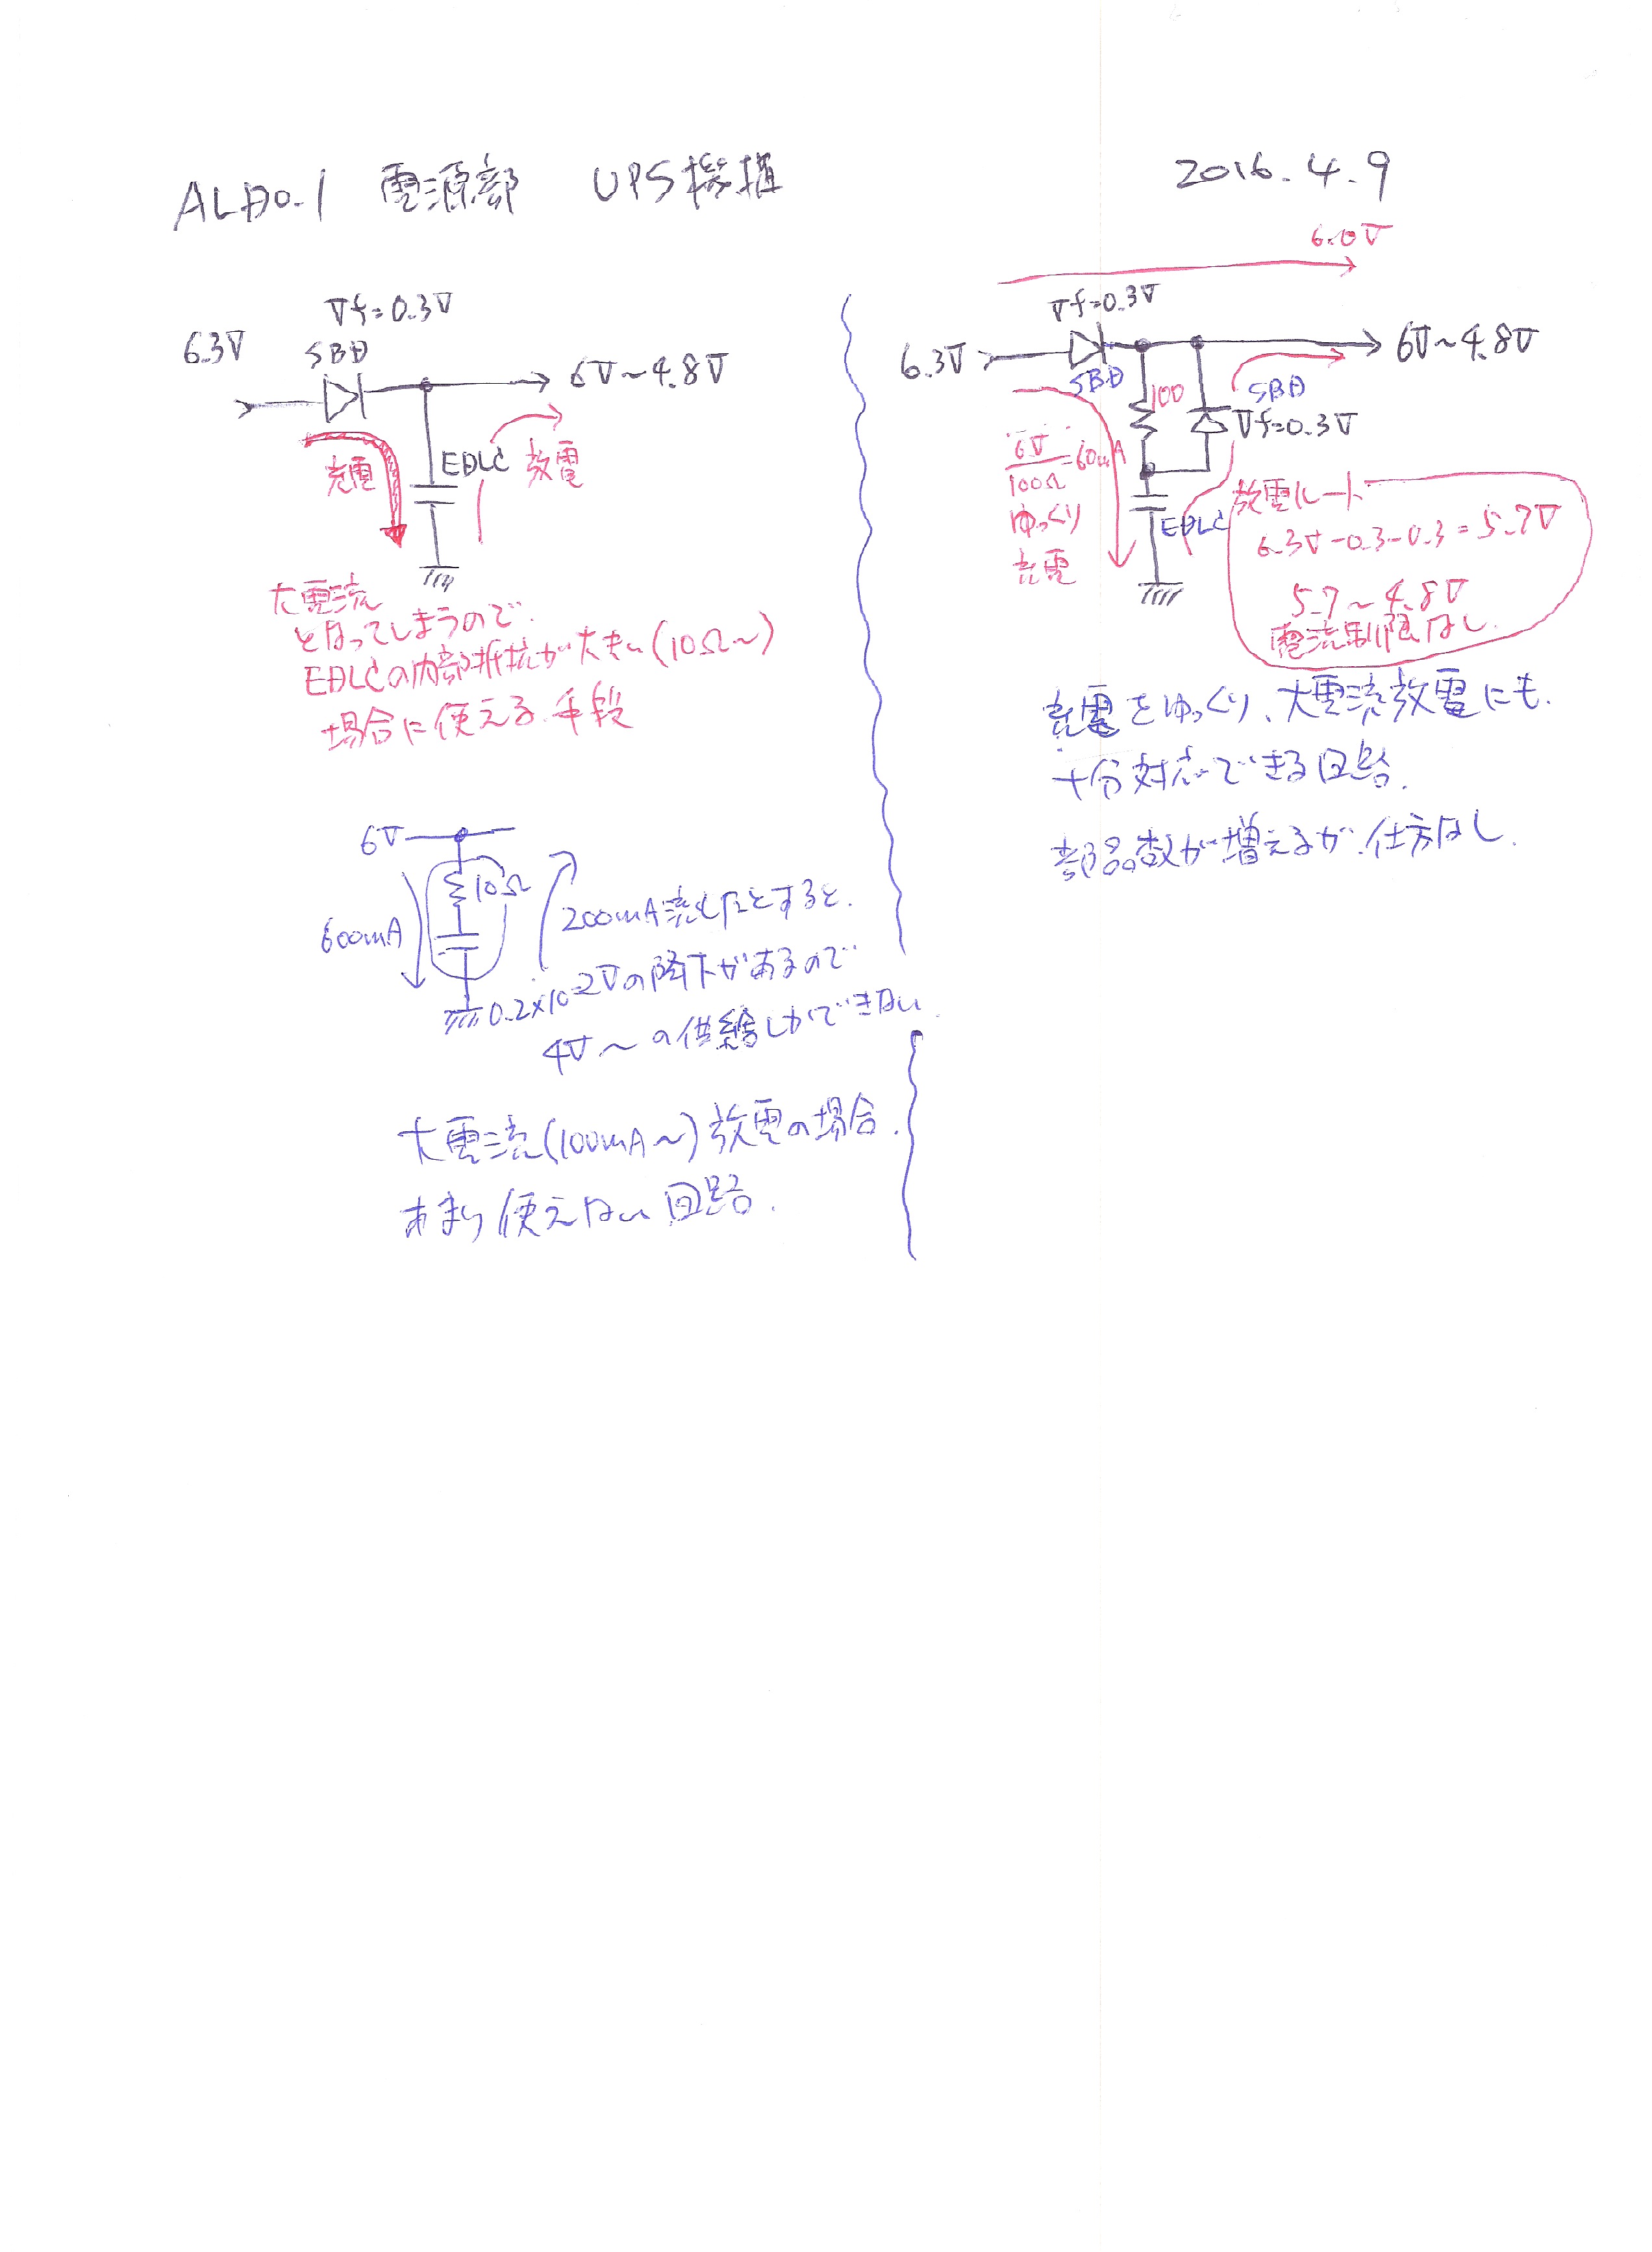 ALD0.1 電源部 UPS機構
2016.4.9
Vf=0.3V
6.3V
SBD
6V～4.8V
EDLC
充電
放電
大電流
となってしまうので
EDLCの内部抵抗が大きい(10Ω～)
場合に使える手段
6V
10Ω
600mA
200mA流したとすると、
0.2×10=2Vの降下があるので
4V～の供給しかできない
大電流(100mA～)放電の場合、
あまり使えない回路.
6.0V
Vf=0.3V
6.3V
SBD
6V～4.8V
100
SBD
Vf=0.3V
6V/100Ω=60mA
ゆっくり
充電
EDLC
放電ルート
6.3V-0.3-0.3=5.7V
5.7～4.8V
電流制限なし.
充電をゆっくり、大電流放電にも.
十分対応できる回路.
部品数が増えるが、仕方なし.